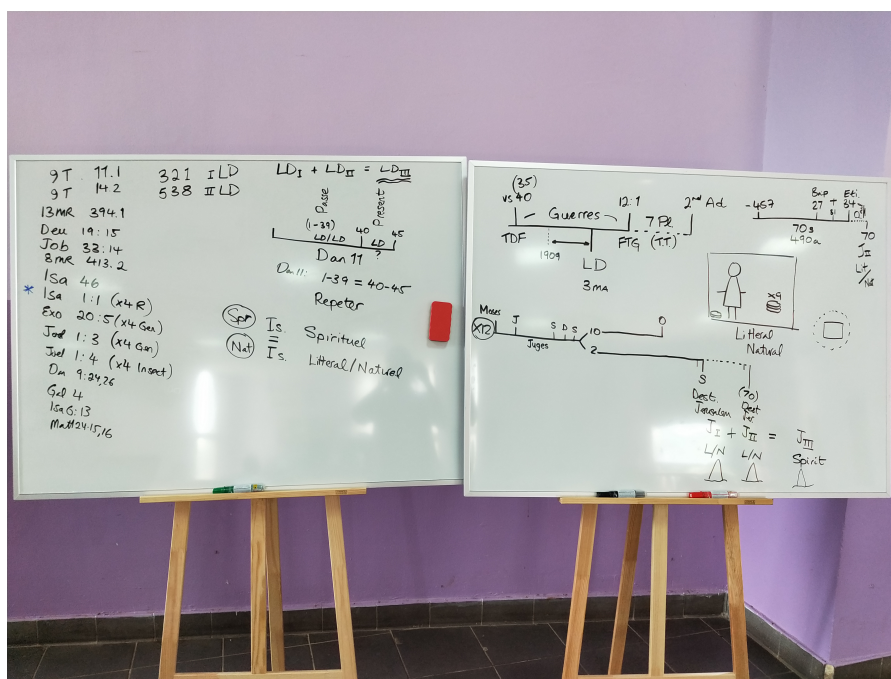 9T 11.1
9T 14.2
13MR 394.1
Deu 19:15
Job 33:14
8MR 413.2
Isa 46
* Isa 1:1 (x4 R)
Exo 20:5 (x4 Gen)
Joel 1:3 (x4 Gen)
Joel 1:4 (x4 Insect)
Dan 9:24,26
Gal 4
Isa 6:13
Matt 24:15,16
321 I LD
538 II LD
LD I + LD II = LD III
Passe
Present
(1-39) 40 45
LD/LD LD
?
Dan 11
Dan 11: 1-39 = 40-45
Repeter
Spr Is. Spirituel
=
Nat Is. Litteral/Naturel
(35)
vs 40 12:1 2nd Ad
Guerres 7 Pl
TDF FTG (T.T)
1909
LD
3ma
-457 27 34
Bap + Eti.
31
70s
490a
70
J II
Lit/Nat
x9
Litteral
Natural
Moses
X12 J S D S 10 0
Juges 2
S (70)
Dest.
Jerusalem
J I + J II = J III
L/N L/N Spirit